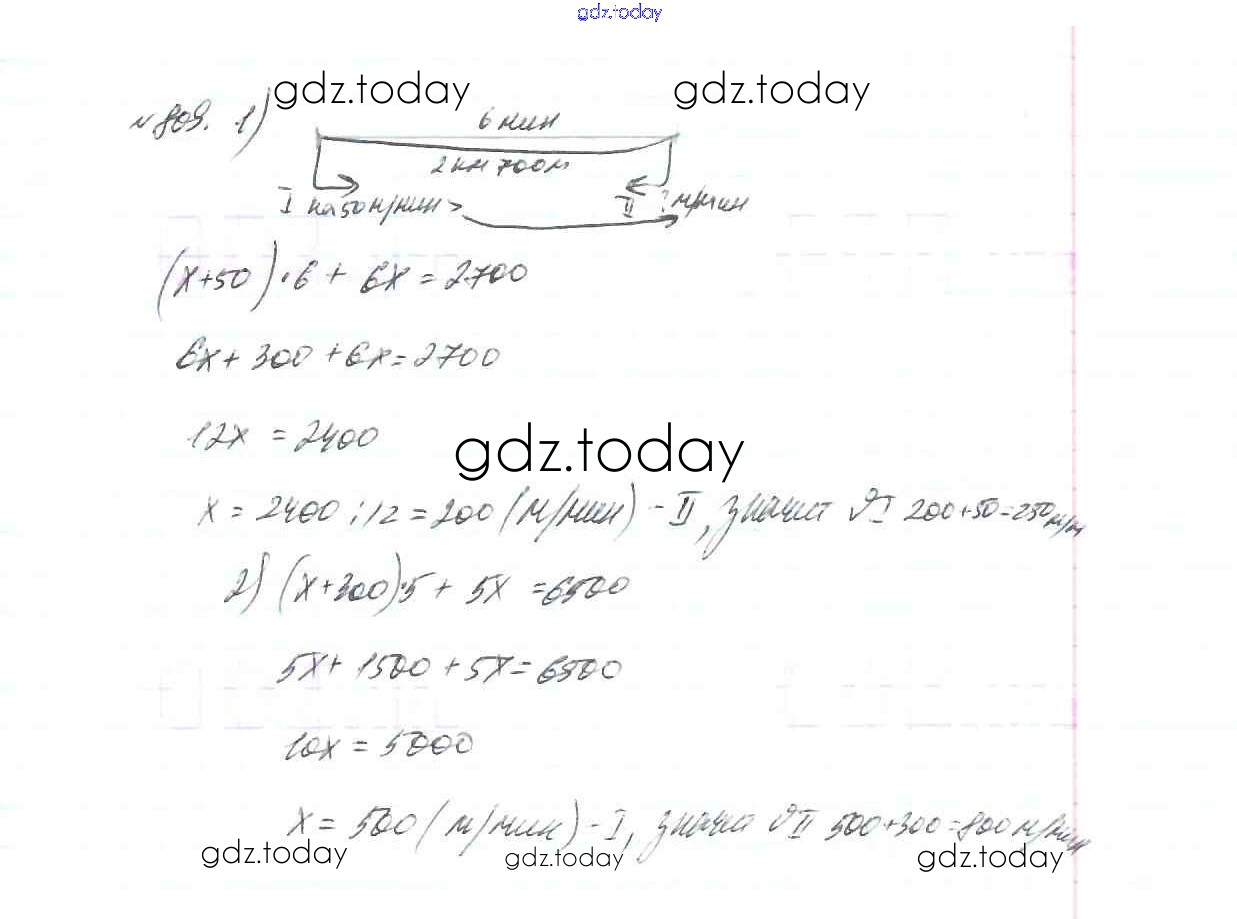 gdz.today
gdz.today gdz.today
№809. 1) 6 мин
2 км 700м
I на 50 м/мин > II ? м/мин
(x+50)·6 + 6x = 2700
6x + 300 + 6x = 2700
12x = 2400
gdz.today
x = 2400 : 12 = 200 (м/мин) - II, значит υI 200+50=250м/м
2) (x+300)·5 + 5x = 6500
5x + 1500 + 5x = 6500
10x = 5000
x = 500 (м/мин) - I, значит υII 500+300=800м/мин
gdz.today gdz.today gdz.today